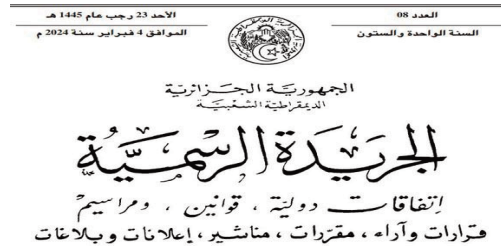 العدد 08
السنة الواحدة والستون
الأحد 23 رجب عام 1445 هـ
الموافق 4 فبراير سنة 2024 م
الجمهورية الجزائرية
الديمقراطية الشعبية
الجريدة الرسمية
إتفاقات دولية، قوانين، ومراسيم
قرارات وآراء، مقررات، مناشير، إعلانات وبلاغات